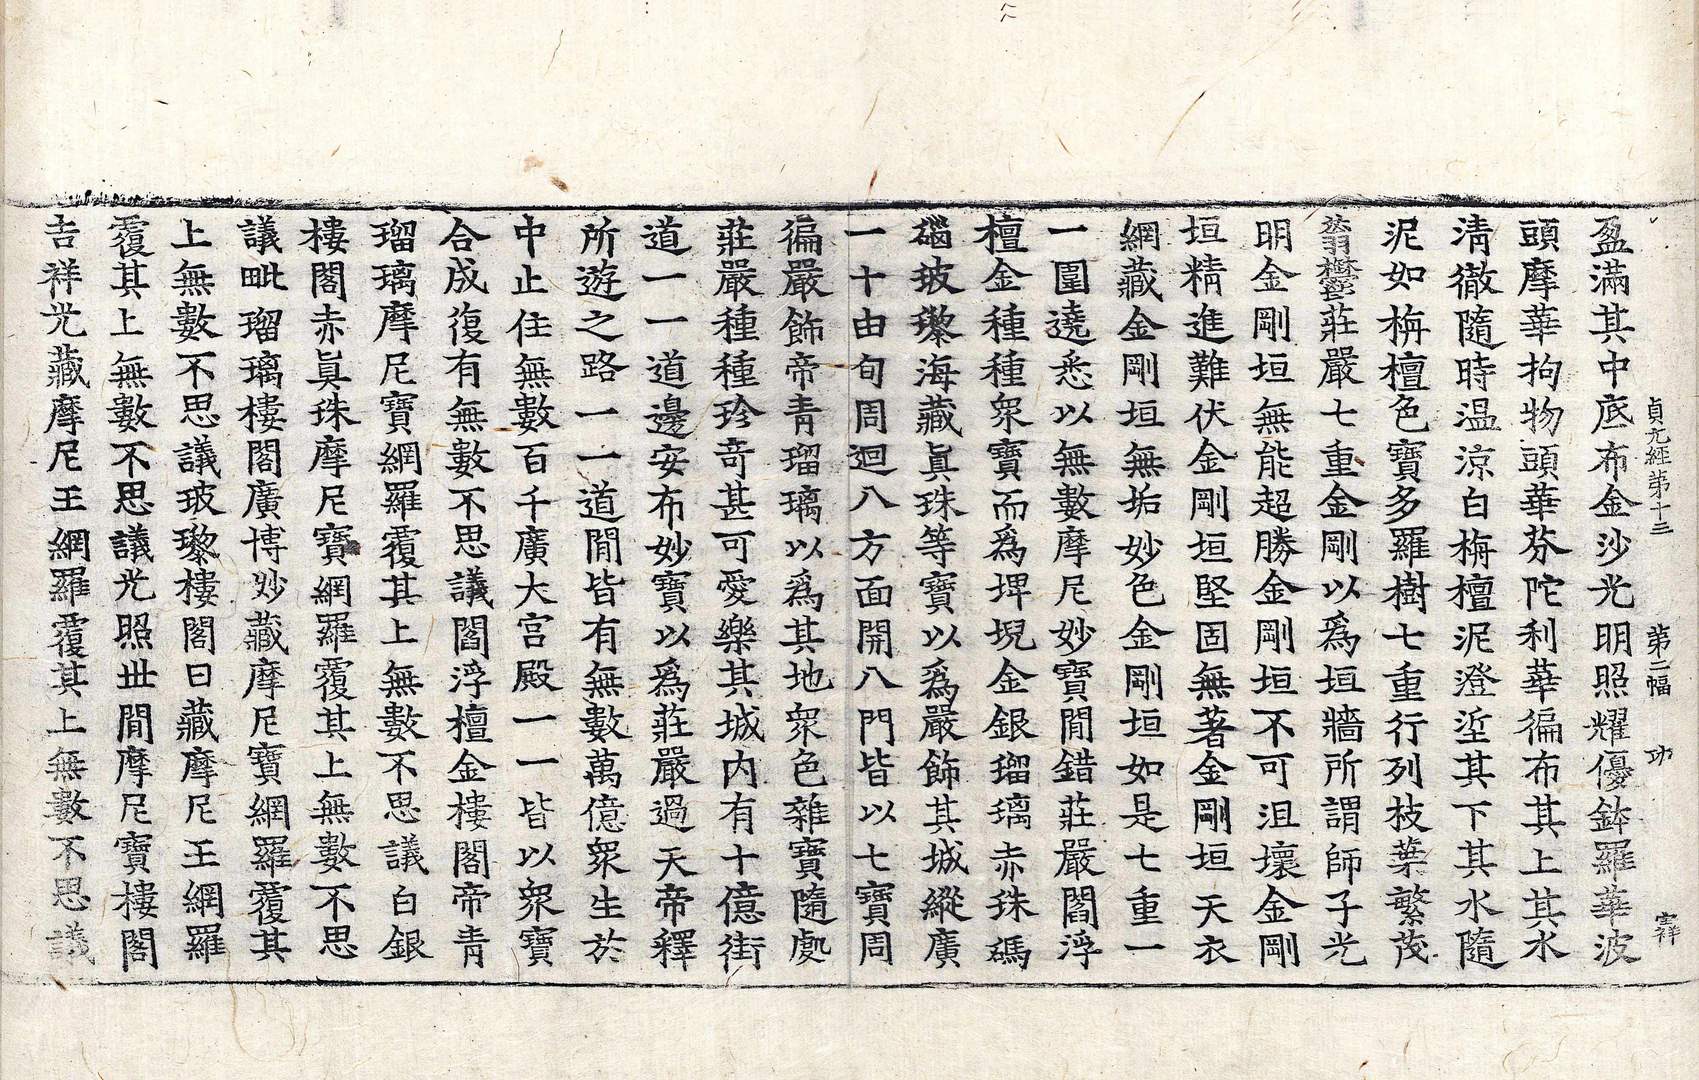 貞元經第十三 第二幅 功 宝祥
盈滿其中底布金沙光明照耀優鉢羅華波
頭摩華拘物頭華芬陀利華徧布其上其水
清徹隨時温涼白栴檀泥澄埿其下其水隨
泥如栴檀色寶多羅樹七重行列枝葉繁茂
蓊欝莊嚴七重金剛以爲垣牆所謂師子光
明金剛垣無能超勝金剛垣不可沮壞金剛
垣精進難伏金剛垣堅固無著金剛垣天衣
網藏金剛垣無垢妙色金剛垣如是七重一
一圍遶悉以無數摩尼妙寶閒錯莊嚴閻浮
檀金種種衆寶而爲埤堄金銀瑠璃赤珠碼
碯玻瓈海藏眞珠等寶以爲嚴飾其城縱廣
一十由旬周迴八方面開八門皆以七寶周
徧嚴飾帝青瑠璃以爲其地衆色雜寶隨處
莊嚴種種珍奇甚可愛樂其城内有十億街
道一一道邊安布妙寶以爲莊嚴過天帝釋
所遊之路一一道閒皆有無數萬億衆生於
中止住無數百千廣大宫殿一一皆以衆寶
合成復有無數不思議閻浮檀金樓閣帝青
瑠璃摩尼寶網羅覆其上無數不思議白銀
樓閣赤眞珠摩尼寶網羅覆其上無數不思
議毗瑠璃樓閣廣博妙藏摩尼寶網羅覆其
上無數不思議玻瓈樓閣日藏摩尼王網羅
覆其上無數不思議光照世閒摩尼寶樓閣
吉祥光藏摩尼王網羅覆其上無數不思議